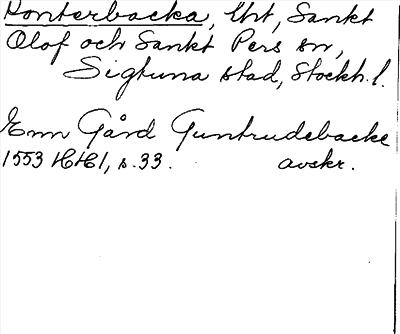 Konterbacka, tht, Sankt
Olof och Sankt Pers sn,
Sigtuna stad, Stockh. l.
Enn Gård Guntrudebacke
1553 HH1, s. 33. avskr.